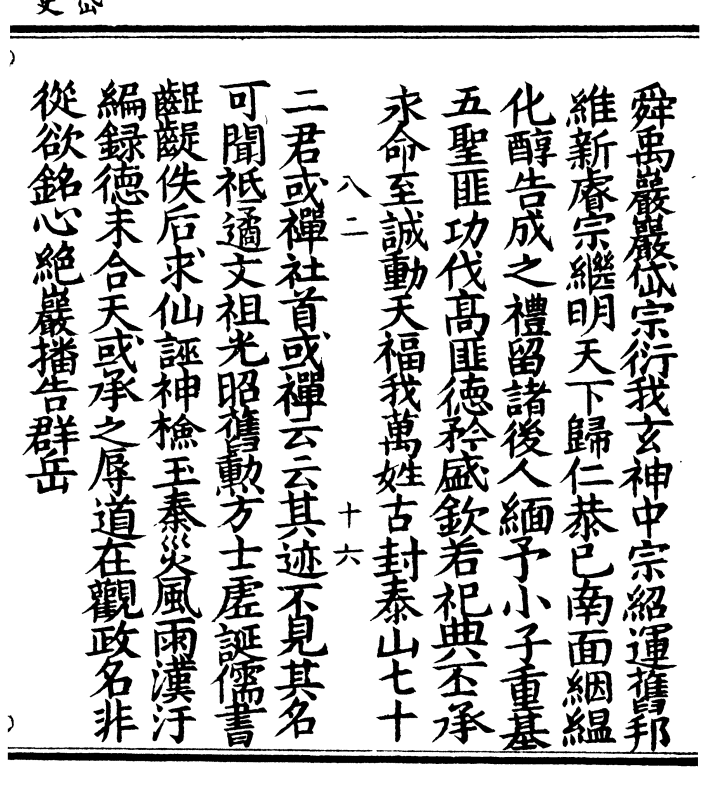 舜禹巖巖岱宗衍我玄神中宗紹運舊邦
維新睿宗繼明天下歸仁恭己南面綑縕
化醇告成之禮留諸後人緬予小子重基
五聖匪功伐高匪德矜盛欽若祀典丕承
永命至誠動天福我萬姓古封泰山七十
八二 十六
二君或禪社首或禪云云其迹不見其名
可聞祗遹文祖光昭舊勳方士虛誕儒書
齷齪佚后求仙誣神檢玉秦災風雨漢汙
編録德未合天或承之辱道在觀政名非
從欲銘心絕巖播告群岳